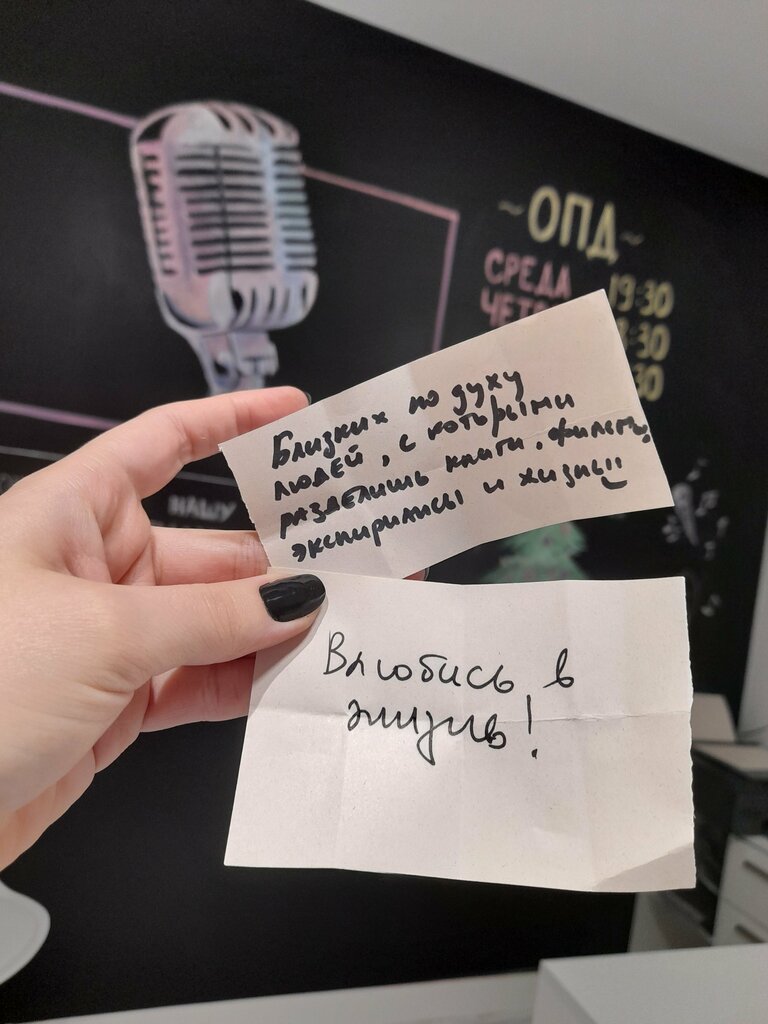 ~ОПД~
СРЕДА 19:30
30
30
Близких по духу
людей, с которыми
разделишь книги, фильмы,
экспирилисы и жизнь!!
Влюбись в
жизнь!
НАШУ